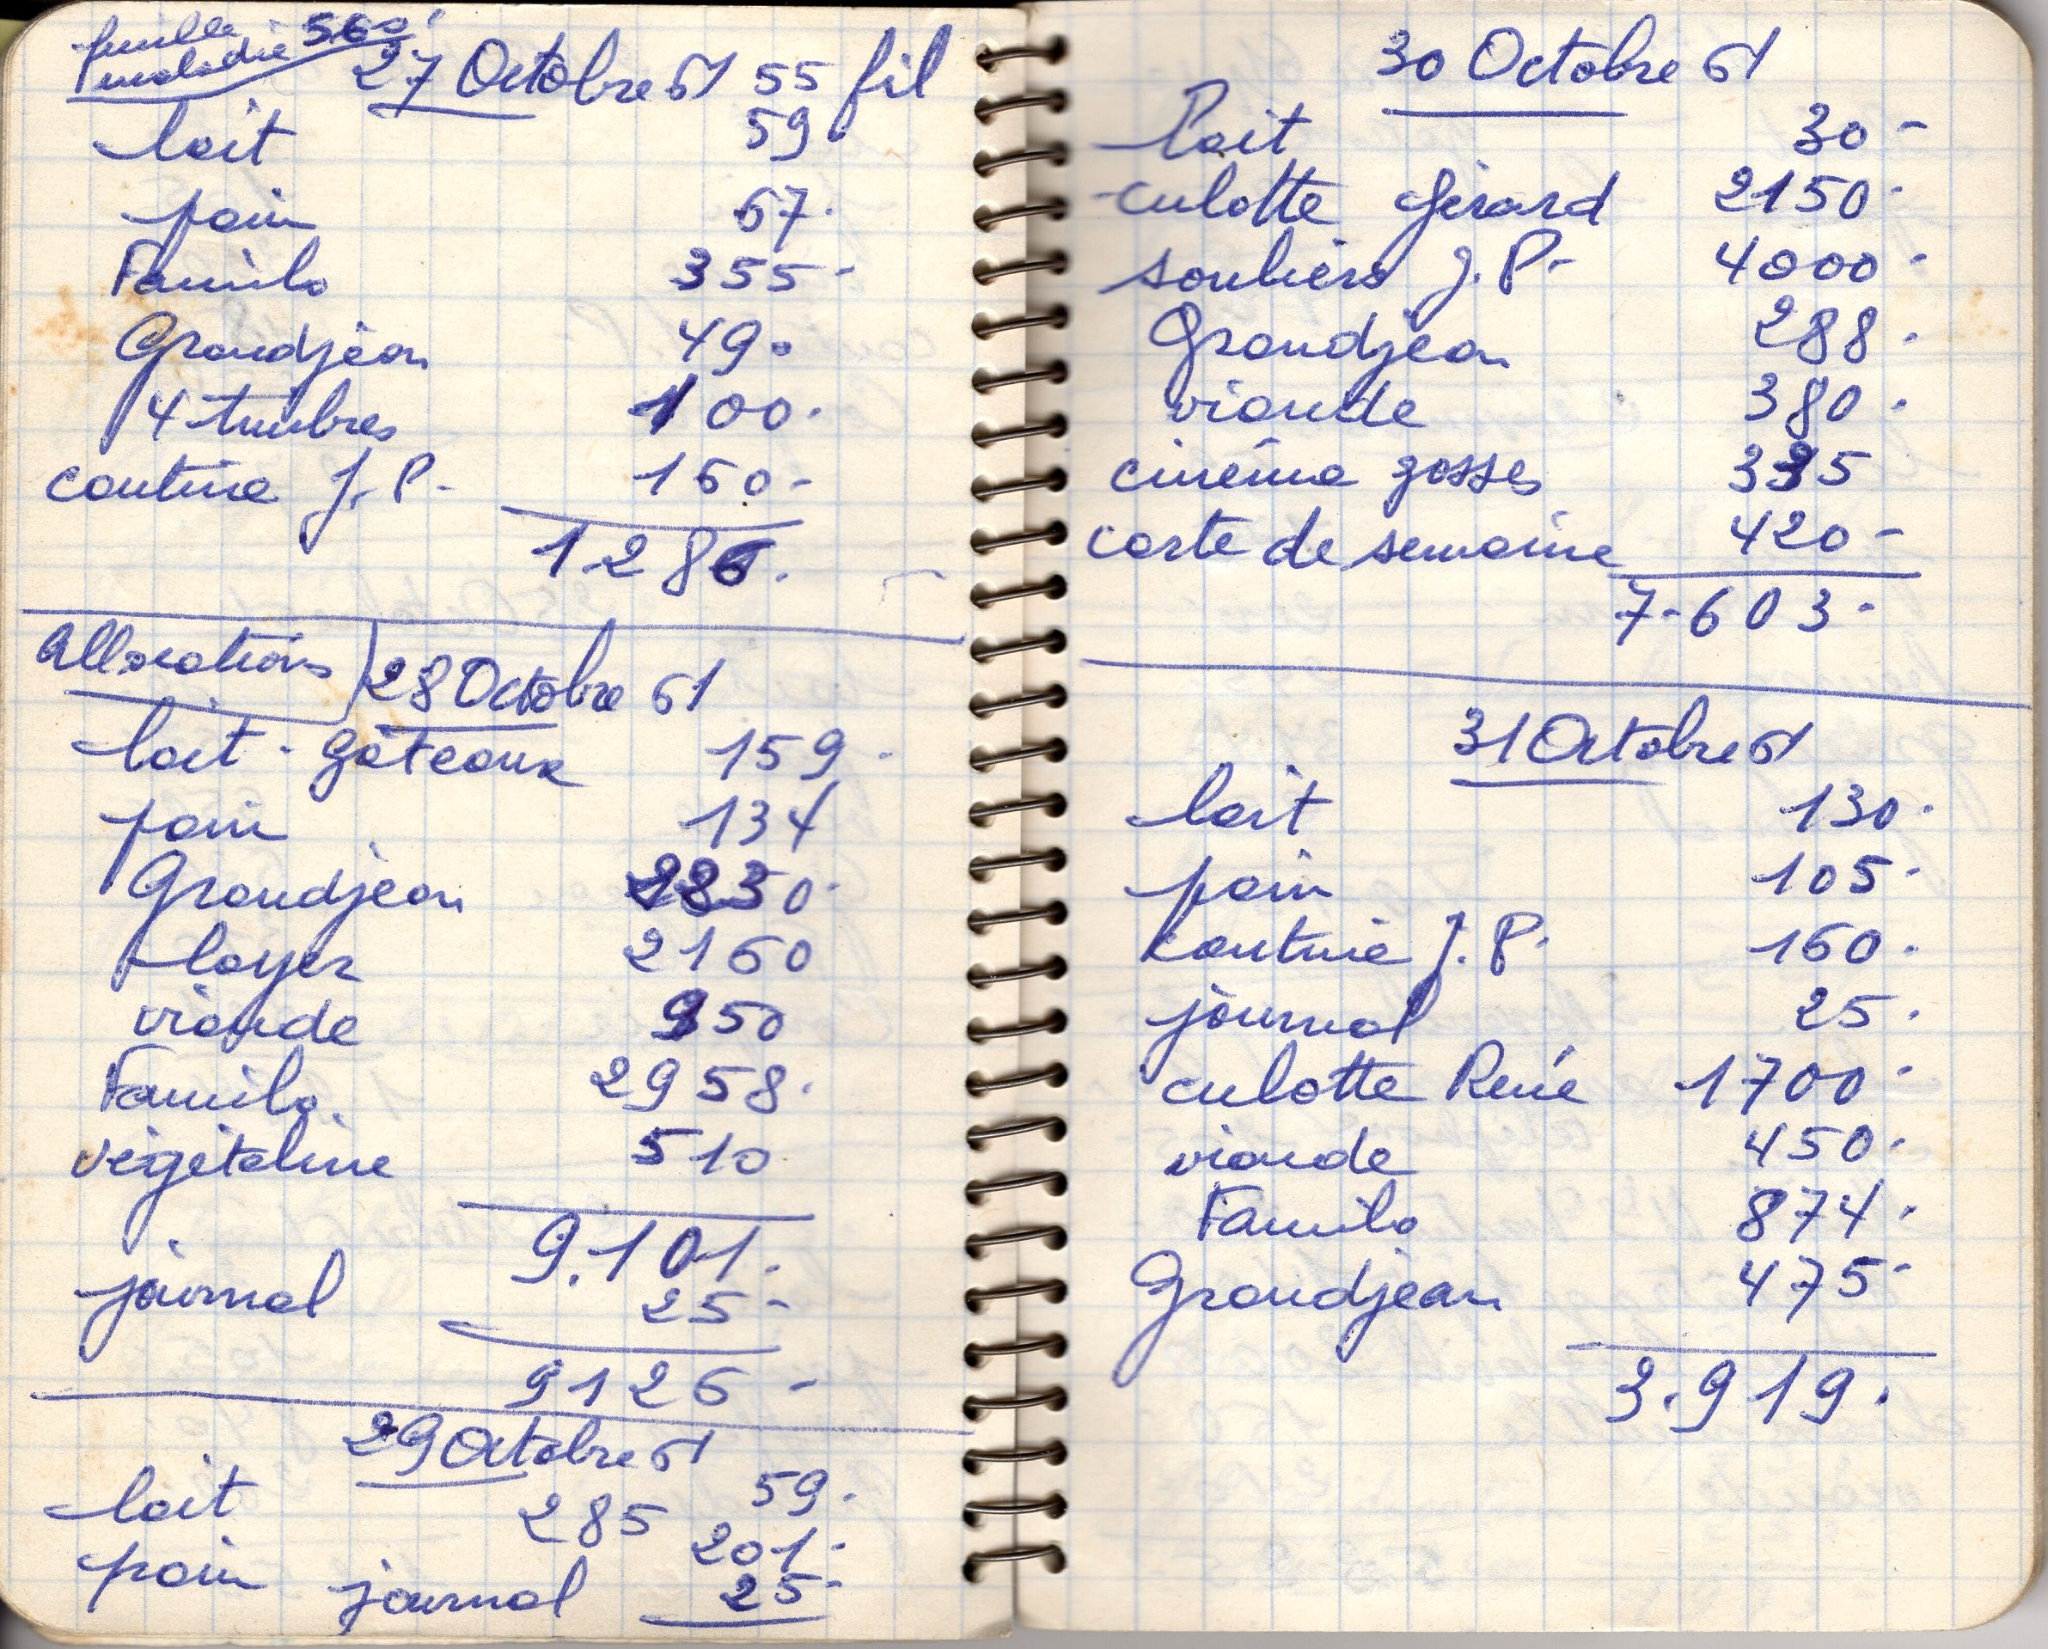 feuille
maladie 560
27 Octobre 61 55 fil
lait 59
pain 67.
Familo 355-
Grandjean 490
4 timbres 100.
cantine J.P- 160-
1286.
Allocations 28 Octobre 61
lait - gâteaux 159.
pain 134
Grandjean 2230.
loyer 2160
viande 950
Familo. 2958.
végétaline 510
9.101.
journal 25-
9126-
29 Octobre 61
lait 285 59.
pain 201.
journal 25-
30 Octobre 61
Lait 30-
culotte Gérard 2150.
souliers J.P- 4000-
Grandjean 288.
viande 380.
cinéma gosses 335
carte de semaine 420-
7.603-
31 Octobre 61
lait 130.
pain 105.
cantine J.P. 160.
journal 25.
culotte René 1700-
viande 450.
Familo 874.
Grandjean 475-
3.919.